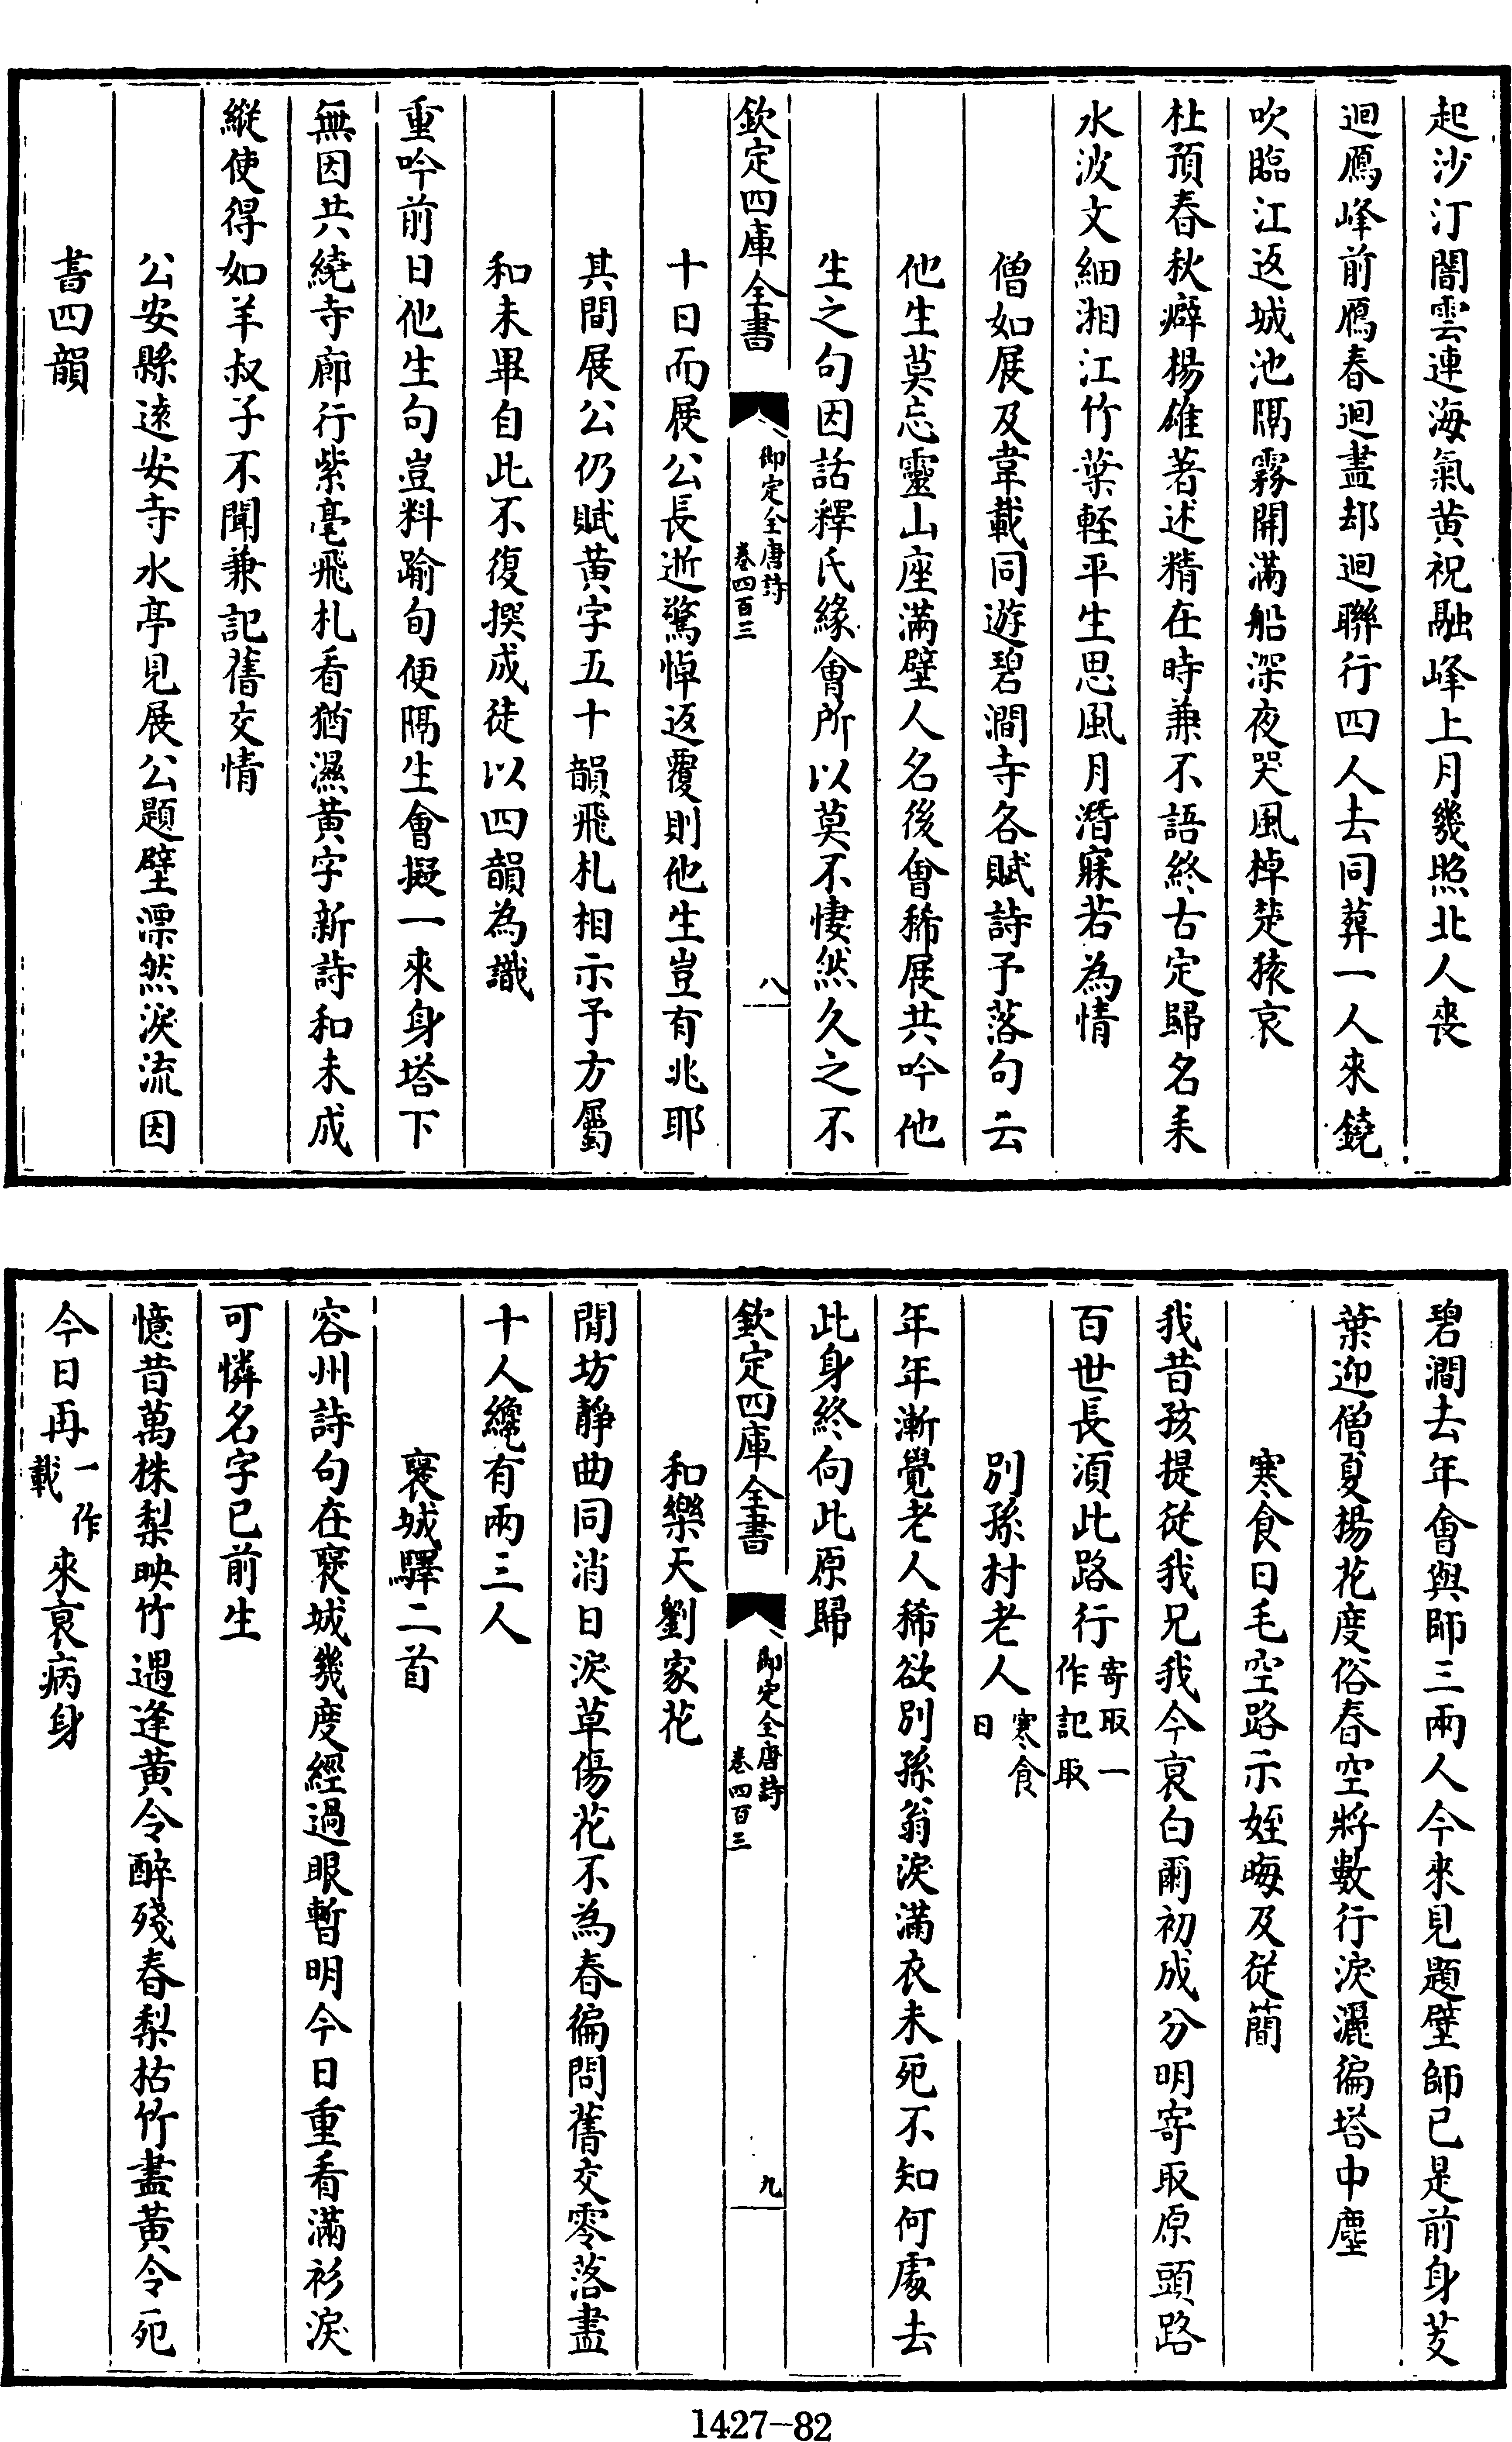 起沙汀闇雲連海氣黄祝融峰上月幾照北人喪
迴鴈峰前鴈春迴盡却迴聯行四人去同葬一人來鐃
吹臨江返城池隔霧開滿船深夜哭風棹楚猿哀
杜預春秋癖楊雄著述精在時兼不語終古定歸名耒
水波文細湘江竹葉輕平生思風月潛寐若為情
僧如展及韋載同遊碧澗寺各賦詩予落句云
他生莫忘靈山座滿壁人名後會稀展共吟他
生之句因話釋氏緣會所以莫不悽然久之不
欽定四庫全書
御定全唐詩
卷四百三
八
十日而展公長逝驚悼返覆則他生豈有兆耶
其間展公仍賦黄字五十韻飛札相示予方屬
和未畢自此不復撰成徒以四韻為識
重吟前日他生句豈料踰旬便隔生會擬一來身塔下
無因共繞寺廊行紫毫飛札看猶濕黄字新詩和未成
縱使得如羊叔子不聞兼記舊交情
公安縣逺安寺水亭見展公題壁漂然淚流因
書四韻
碧澗去年會與師三兩人今來見題壁師已是前身芰
葉迎僧夏楊花度俗春空將數行淚灑徧塔中塵
寒食日毛空路示姪晦及從簡
我昔孩提從我兄我今衰白爾初成分明寄取原頭路
百世長須此路行寄取一作記取
別孫村老人寒食日
年年漸覺老人稀欲別孫翁淚滿衣未死不知何處去
此身終向此原歸
欽定四庫全書
御定全唐詩
卷四百三
九
和樂天劉家花
閒坊静曲同消日淚草傷花不為春徧問舊交零落盡
十人纔有兩三人
褒城驛二首
容州詩句在褒城幾度經過眼暫明今日重看滿衫淚
可憐名字已前生
憶昔萬株梨映竹遇逢黄令醉殘春梨枯竹盡黄令死
今日再一作載來衰病身
1427-82